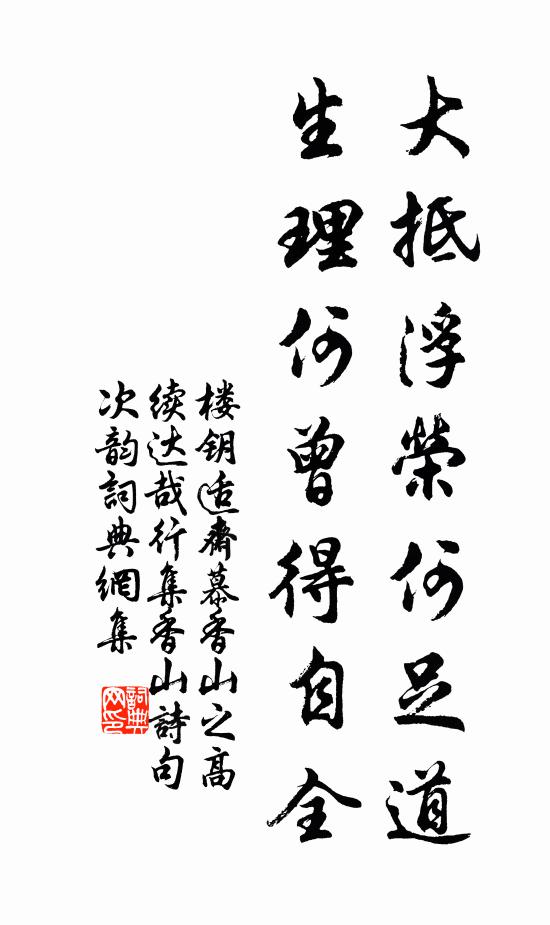 大抵浮榮何足道
生理何曾得自全
楼钥适齋慕香山之高
续达哉行集香山詩句
次韵詞典網集
詞典
网印